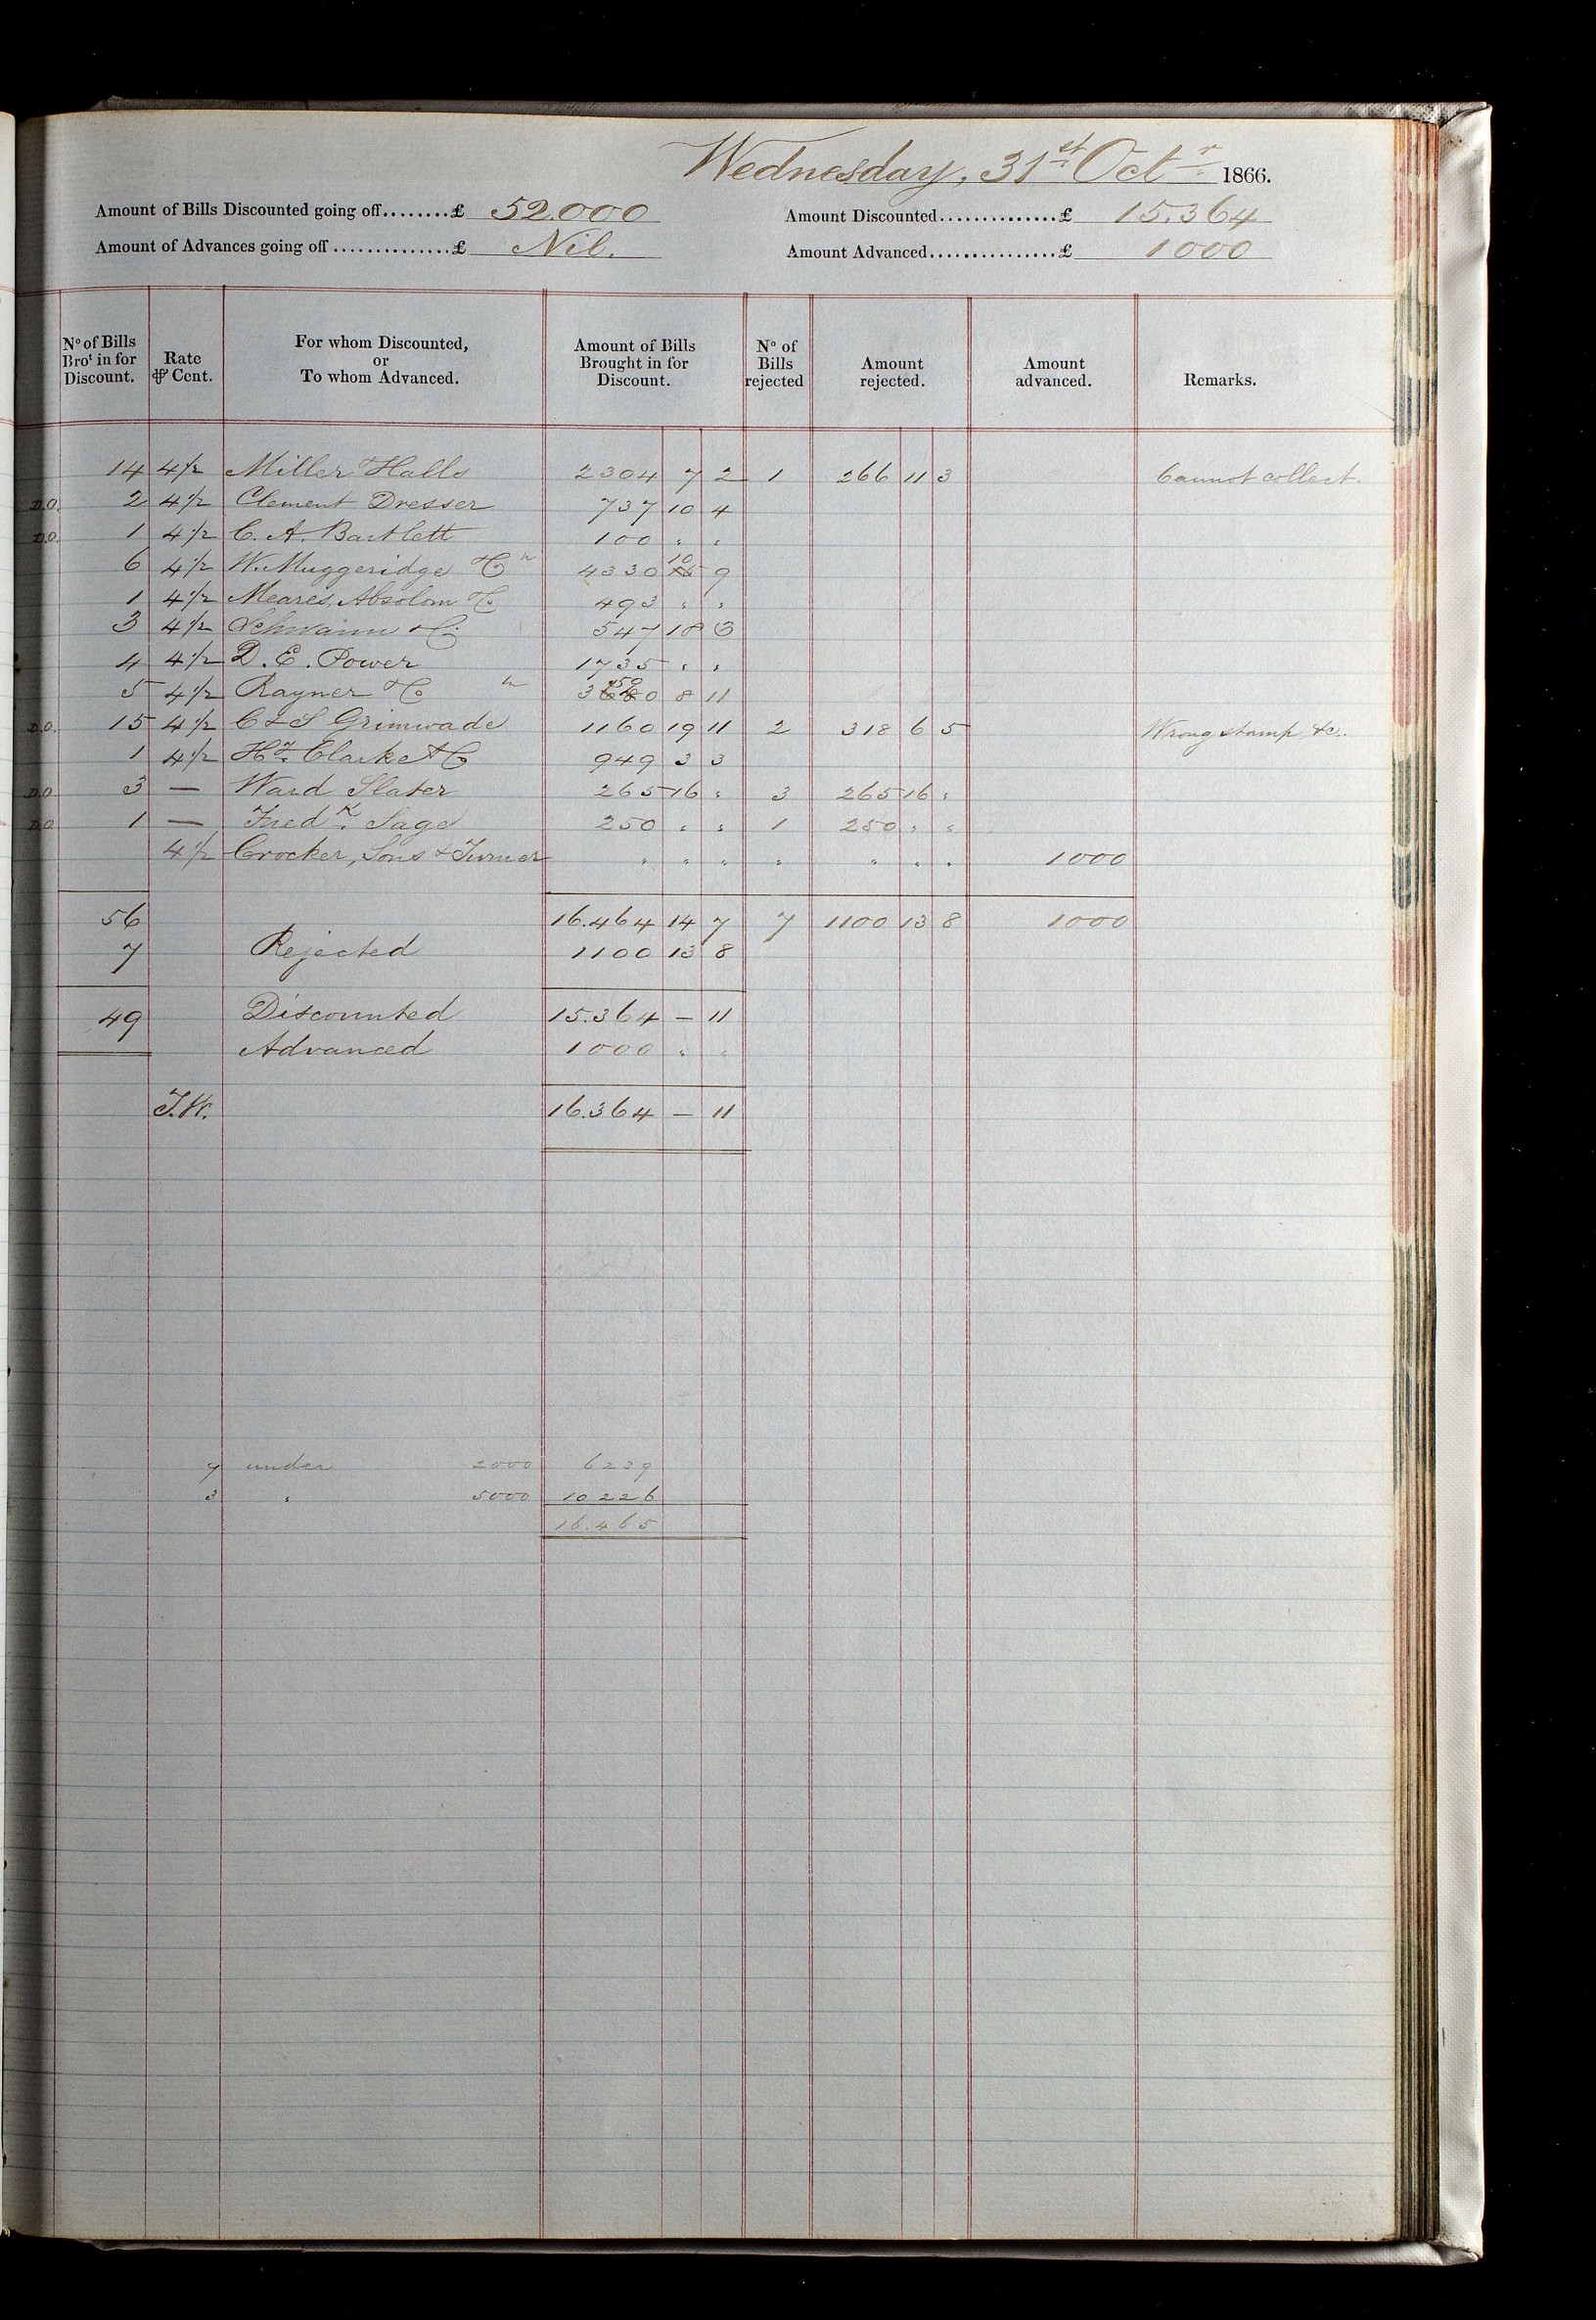 Wednesday, 31st Octr 1866.
Amount of Bills Discounted going off........£ 52.000 Amount Discounted..............£ 15.364
Amount of Advances going off ..............£ Nil. Amount Advanced...............£ 1000
No of Bills Brot in for Discount. Rate ⅌ Cent. For whom Discounted, or To whom Advanced. Amount of Bills Brought in for Discount. No of Bills rejected Amount rejected. Amount advanced. Remarks.
14 4½ Miller & Halls 2304 7 2 1 266 11 3 Cannot collect.
D.O. 2 4½ Clement Dresser 737 10 4
D.O. 1 4½ C. A. Bartlett 100 " "
6 4½ W. Muggeridge & Co 4330 10 9
1 4½ Meares, Absolom & Co 493 " "
3 4½ Schwann & Co 547 18 3
4 4½ D. E. Power 1735 " "
5 4½ Rayner & Co 3590 8 11
D.O. 15 4½ C & S Grimwade 1160 19 11 2 318 6 5 Wrong stamp, &c.
1 4½ Hy Clarke & Co 949 3 3
D.O. 3 — Ward Slater 265 16 " 3 265 16 "
D.O. 1 — Fredk Sage 250 " " 1 250 " "
4½ Crocker, Sons & Turner " " " " " " " 1000
56 16.464 14 7 7 1100 13 8 1000
7 Rejected 1100 13 8
49 Discounted 15.364 — 11
Advanced 1000 " "
J.W. 16.364 — 11
9 under 2000 6239
3 " 5000 10226
16.465